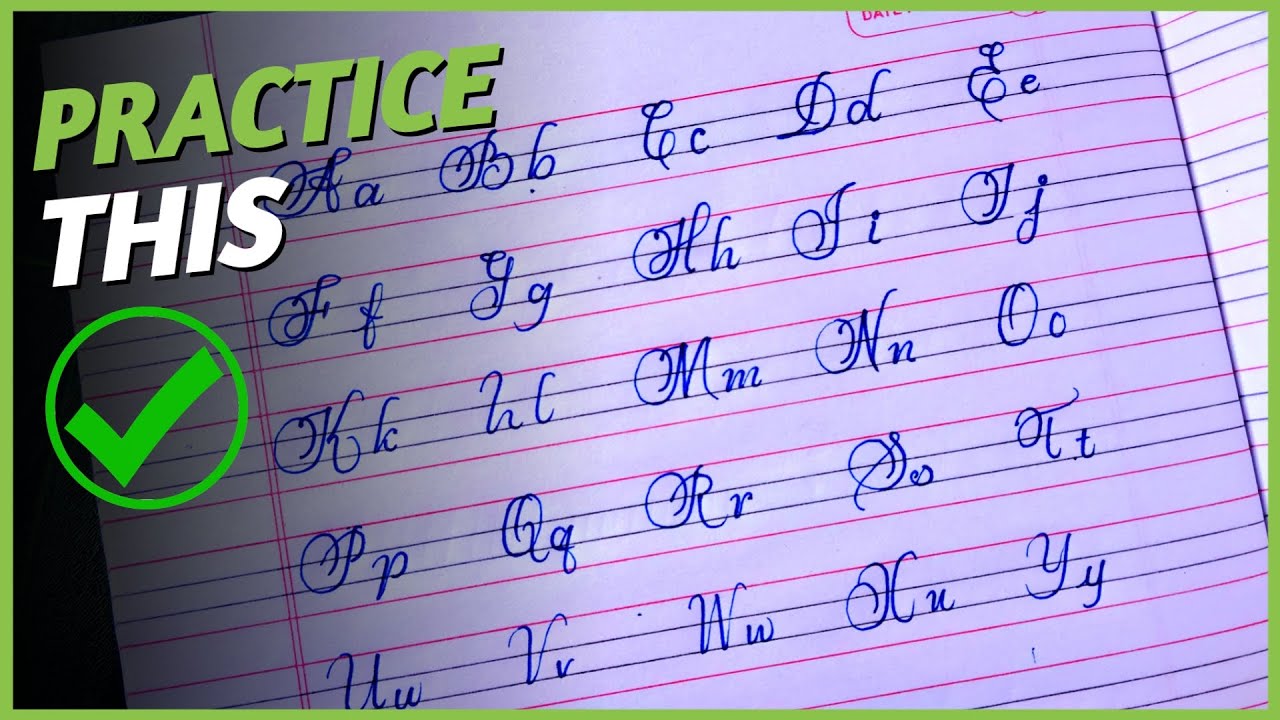 PRACTICE
THIS
DATE:
Aa Bb Cc Dd Ee
Ff Gg Hh Ii Jj
Kk Ll Mm Nn Oo
Pp Qq Rr Ss Tt
Uu Vv Ww Xx Yy